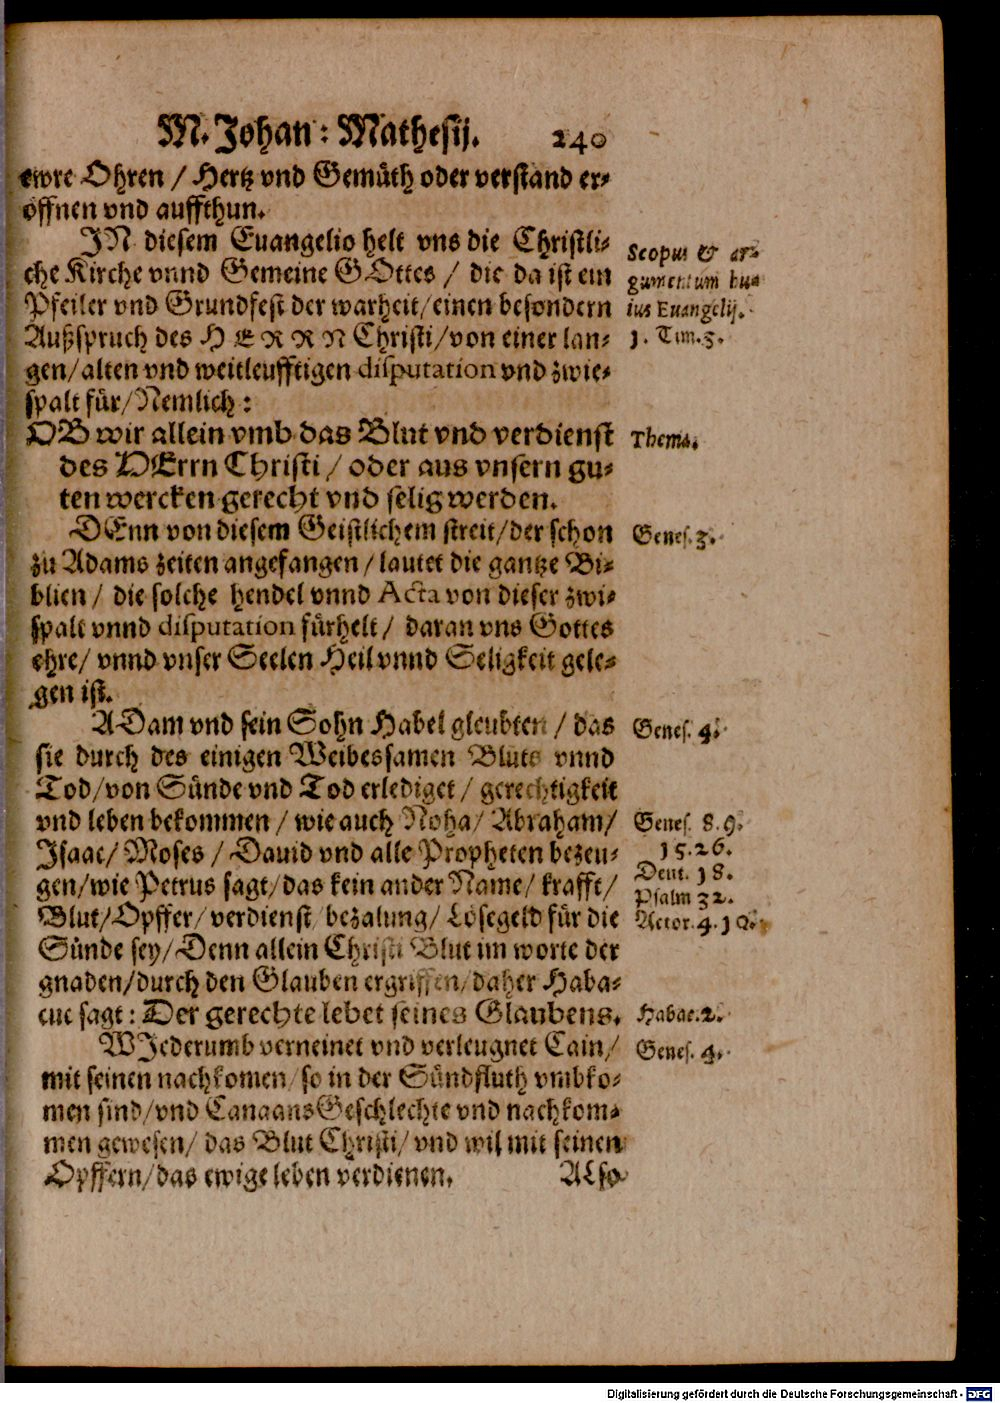 M. Johan: Mathesij. 240
ewre Ohren / Hertz vnd Gemüth oder verstand er-
öffnen vnd auffthun.
IN diesem Euangelio helt vns die Christli-
che Kirche vnnd Gemeine GOttes / die da ist ein
Pfeiler vnd Grundfest der warheit/einen besondern
Außspruch des HERRN Christi/von einer lan-
gen/alten vnd weitleufftigen disputation vnd zwie-
spalt für/Nemlich:
Scopus & ar-
gumentum hu-
ius Euangelij.
1. Tim. 3.
OB wir allein vmb das Blut vnd verdienst
des HErrn Christi / oder aus vnsern gu-
ten wercken gerecht vnd selig werden.
Thema.
DEnn von diesem Geistlichem streit/der schon
zu Adams zeiten angefangen / lautet die gantze Bi-
blien / die solche hendel vnnd Acta von dieser zwi-
spalt vnnd disputation fürhelt / daran vns Gottes
ehre/ vnnd vnser Seelen Heil vnnd Seligkeit gele-
gen ist.
Genes. 3.
ADam vnd sein Sohn Habel gleubten / das
sie durch des einigen Weibessamen Bluts vnnd
Tod/von Sünde vnd Tod erlediget / gerechtigkeit
vnd leben bekommen / wie auch Noha/ Abraham/
Isaac/ Moses / Dauid vnd alle Propheten bezeu-
gen/wie Petrus sagt/das kein ander Name/ krafft/
Blut/Opffer/ verdienst/ bezalung/ Lösegeld für die
Sünde sey/Denn allein Christi Blut im worte der
gnaden/durch den Glauben ergriffen/daher Haba-
cuc sagt: Der gerechte lebet seines Glaubens.
Genes. 4.
Genes. 8. 9.
15. 26.
Deut. 18.
Psalm 32.
Actor. 4. 10.
Habac. 2.
WJederumb verneinet vnd verleugnet Cain/
mit seinen nachkomen/so in der Sündfluth vmbko-
men sind/vnd Canaans Geschlechte vnd nachkom-
men gewesen/ das Blut Christi/ vnd wil mit seinen
Opffern/das ewige leben verdienen.
Genes. 4.
ALso
Digitalisierung gefördert durch die Deutsche Forschungsgemeinschaft - DFG